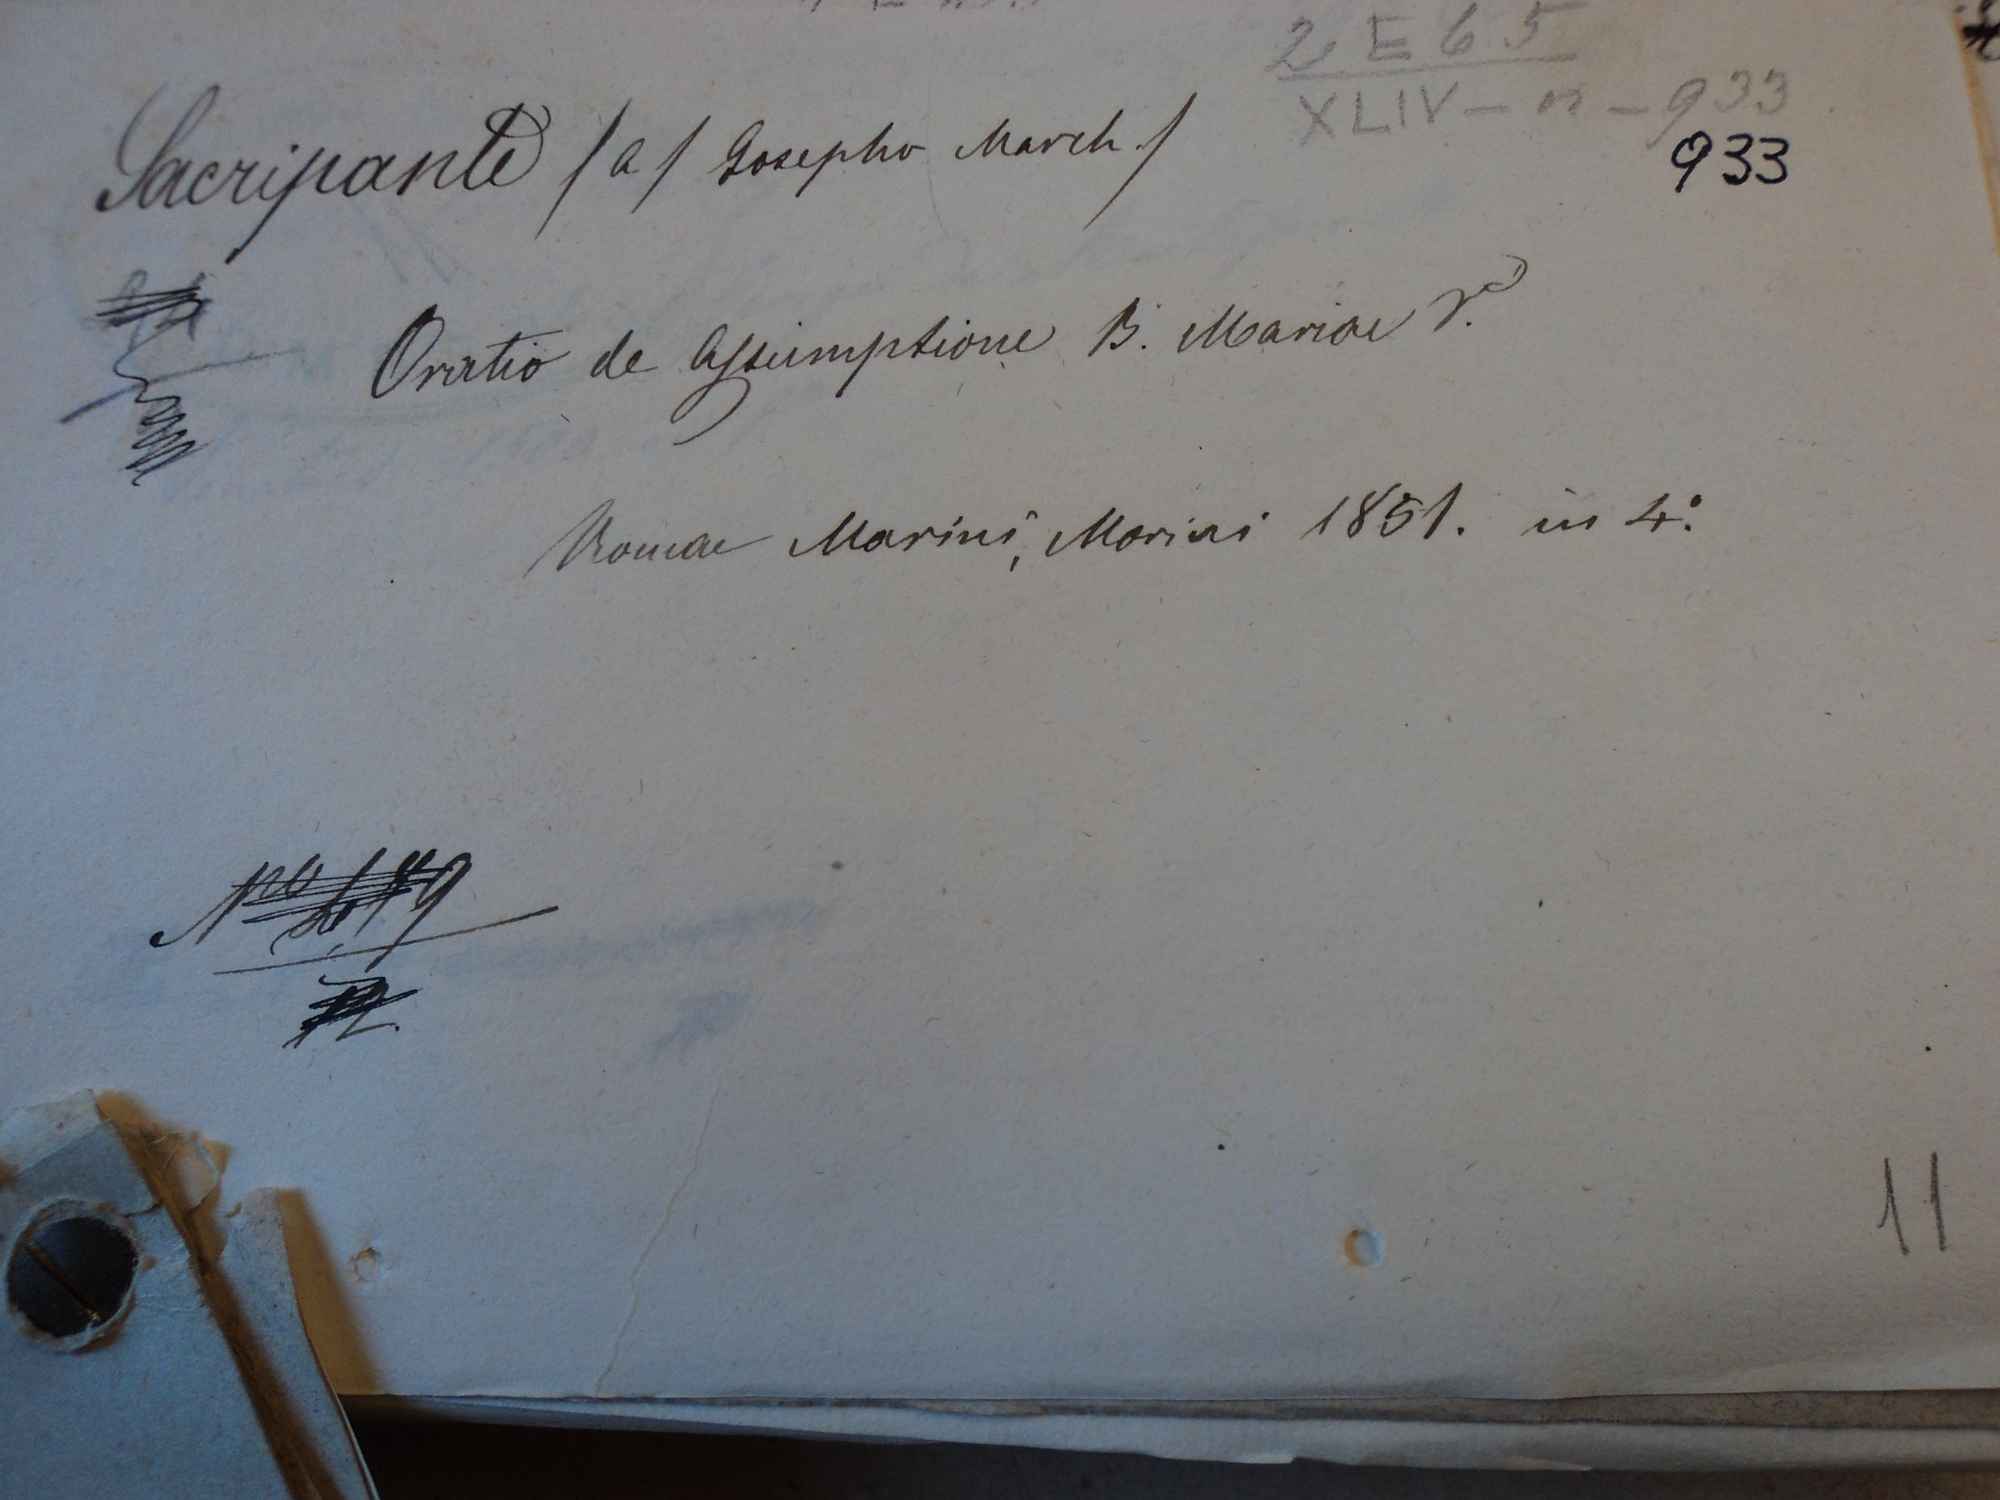 2 E 65
XLIV - n - 933
933
Sacripante /a/ Josepho March./
Oratio de Assumptione B. Mariae V.
Romae Marini, Morini 1851. in 4.°
11